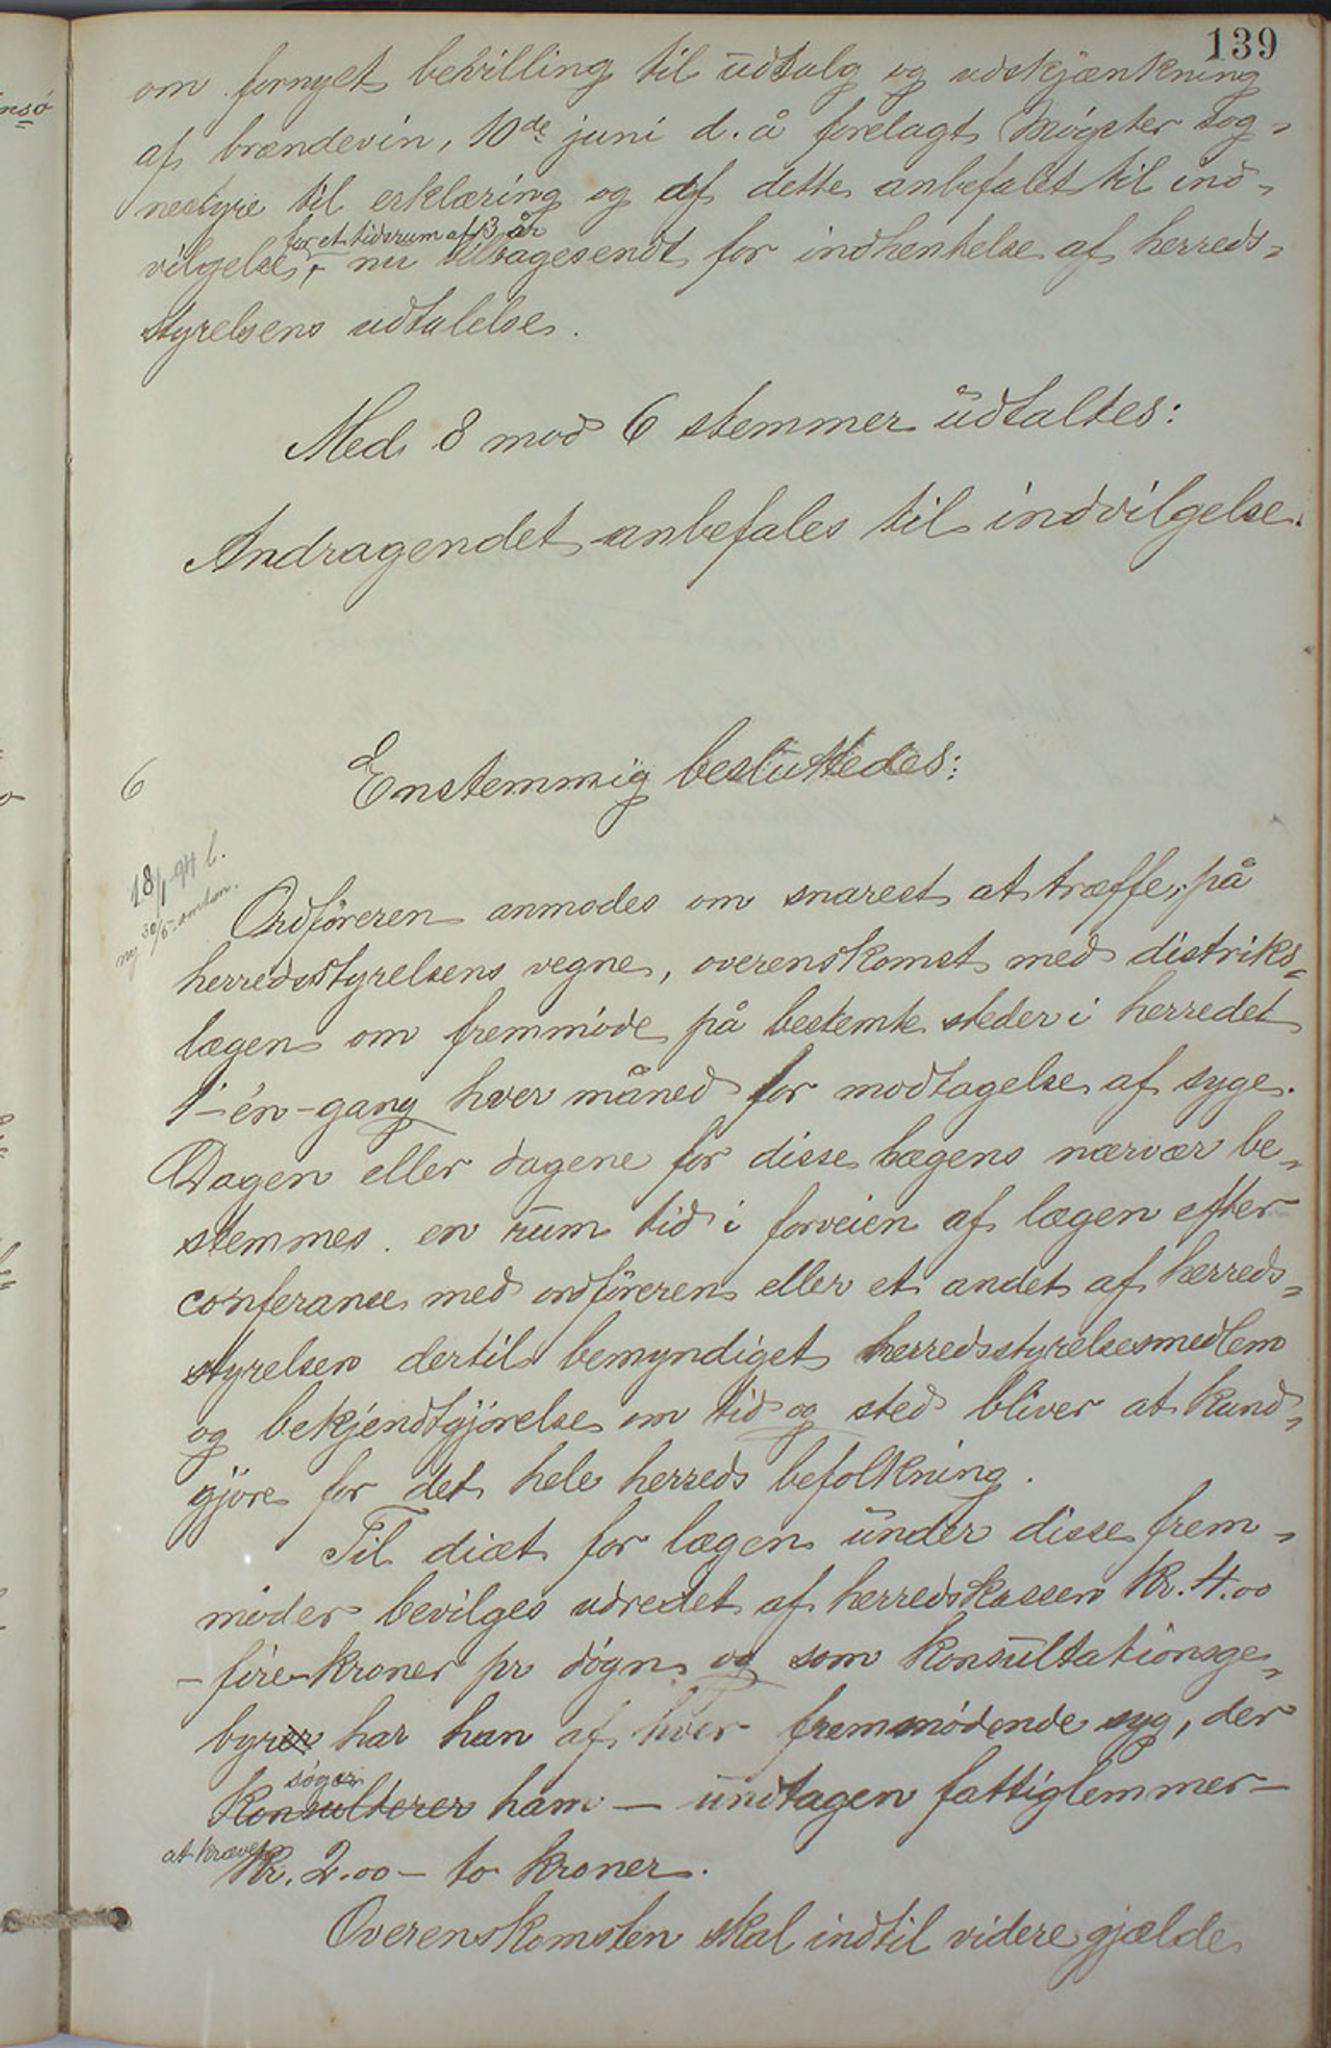 139
om fornyet bevilling til udsalg og udskjænkning
af brændevin, 10de juni d. å forelagt Møgster sog-
nestyre til erklæring og af dette anbefalet til ind-
for et tidsrum af 3 år
vilgelse, nu tilbagesendt for indhentelse af herreds-
styrelsens udtalelse.
Med 8 mod 6 stemmer udtaltes:
Andragendet anbefales til indvilgelse.
6
Enstemmig besluttedes:
18/1-94 b.
ny 30/5
Ordføreren anmodes om snarest at træffe, på
herredsstyrelsens vegne, overenskomst med distriks-
lægen om fremmøde på bestemte steder i herredet
1-én-gang hver måned for modtagelse af syge.
Dagen eller dagene for disse lægens nærvær be-
stemmes en rum tid i forveien af lægen efter
conferance med ordføreren eller et andet af herreds-
styrelsen dertil bemyndiget herredsstyrelsesmedlem
og bekjendtgjørelse om tid og sted bliver at kund-
gjøre for det hele herreds befolkning.
Til diæt for lægen under disse frem-
møder bevilges udredet af herredskassen kr. 4.00
- fire kroner pr døgn og som konsultationsge-
byrer har han af hver fremmødende syg, der
søger
konsulterer ham - undtagen fattiglemmer -
at kræve
kr. 2.00 - to kroner.
Overenskomsten skal indtil videre gjælde